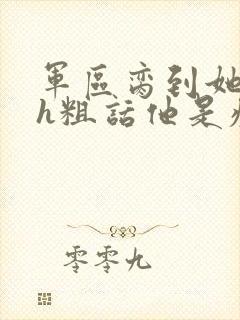 軍區脔到她
h粗話他是
零零九